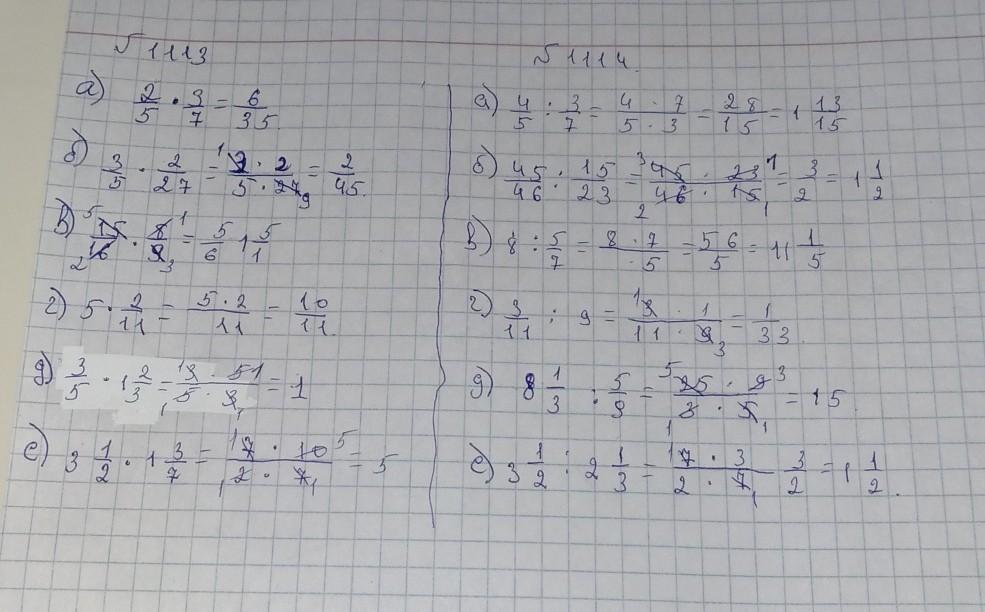 № 1113
а) 2/5 · 3/7 = 6/35.
б) 3/5 · 2/27 = 3 · 2 / 5 · 27 = 2/45. (1, 9)
в) 15/16 · 8/9 = 5/6 1 5/1 (5, 2, 1, 3)
г) 5 · 2/11 = 5 · 2 / 11 = 10/11.
д) 3/5 · 1 2/3 = 3 · 5 / 5 · 3 = 1 (1, 1, 1, 1)
е) 3 1/2 · 1 3/7 = 7 · 10 / 2 · 7 = 5 (1, 5, 1, 1)
№ 1114.
а) 4/5 : 3/7 = 4 · 7 / 5 · 3 = 28/15 = 1 13/15
б) 45/46 : 15/23 = 45 · 23 / 46 · 15 = 3/2 = 1 1/2 (3, 1, 2, 1)
в) 8 : 5/7 = 8 · 7 / · 5 = 56/5 = 11 1/5
г) 3/11 : 9 = 3 · 1 / 11 · 9 = 1/33. (1, 3)
д) 8 1/3 : 5/9 = 25 · 9 / 3 · 5 = 15 (5, 3, 1, 1)
е) 3 1/2 : 2 1/3 = 7 · 3 / 2 · 7 3/2 = 1 1/2. (1, 1)